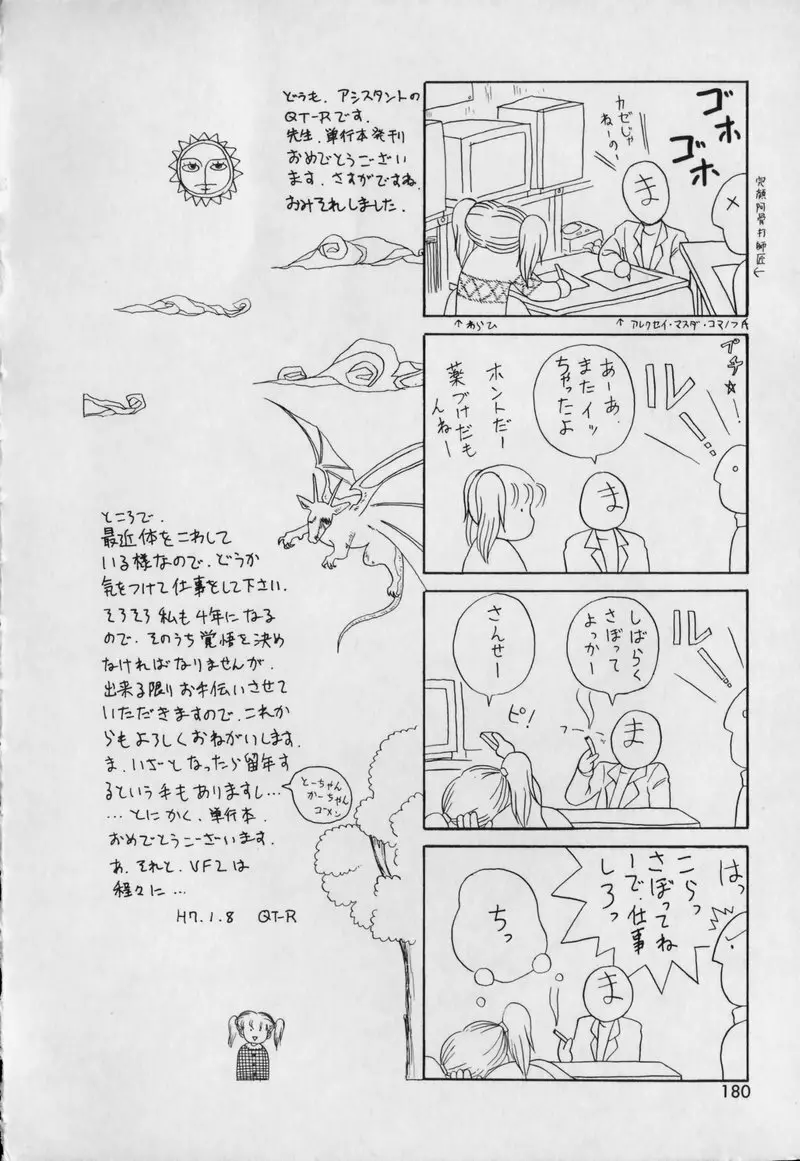 ゴホ
ゴホ
カゼじゃ
ねーの?
ま
←わらひ
←アレクセイ・マスダ・コマノフ氏
プチ☆
ル
あーあ.
またイッ
ちゃったよ
ホントだー
薬づけだも
んねー
ま
ル
しばらく
さぼって
よっかー
さんせー
ピ!
ま
はっ
こらっ
さぼってね
ーで.仕事
しろっ
ちっ
ま
どうも.アシスタントの
QT-Rです.
先生.単行本発刊
おめでとうござい
ます.さすがですね.
おみそれしました.
ところで.
最近体をこわして
いる様なので.どうか
気をつけて仕事をして下さい.
そろそろ私も4年になる
ので.そのうち覚悟を決め
なければなりませんが.
出来る限りお手伝いさせて
いただきますので.これか
らもよろしくおねがいします.
ま.いざとなったら留年す
るという手もありますし…
…とにかく.単行本.
おめでとうございます.
あ.それと.VF2は
程々に…
H7.1.8 QT-R
とーちゃん
かーちゃん
ゴメン
180